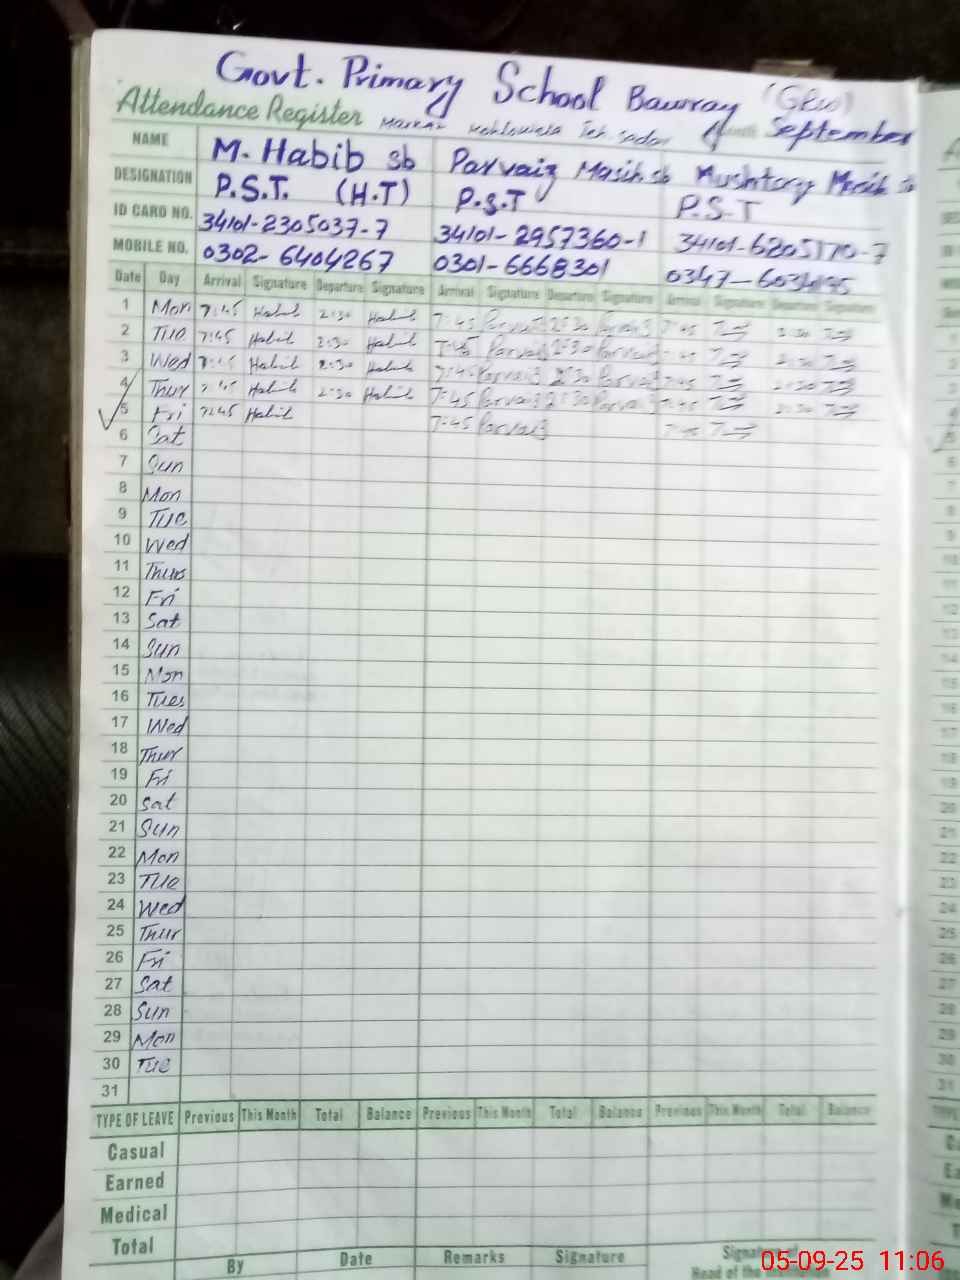 Govt. Primary School Bawray (GRW)
Attendance Register Markaz Teh. Sadar Month September
NAME M. Habib sb Parvaiz Masih sb Mushtaq Masih sb
DESIGNATION P.S.T. (H.T) P.S.T P.S.T
ID CARD NO. 34101-2305037-7 34101-2957360-1 34101-6205170-7
MOBILE NO. 0302-6404267 0301-6668301 0347-
Date Day Arrival Signature Departure Signature Arrival Signature Departure Signature Arrival Signature Departure Signature
1 Mon 7:45 Habib 2:30 Habib 7:45 Parvaiz 2:30 Parvaiz 7:45 2:30
2 Tue 7:45 Habib 2:30 Habib 7:45 Parvaiz 2:30 Parvaiz 7:45 2:30
3 Wed 7:45 Habib 2:30 Habib 7:45 Parvaiz 2:30 Parvaiz 7:45 2:30
4 Thur 7:45 Habib 2:30 Habib 7:45 Parvaiz 2:30 Parvaiz 7:45 2:30
5 Fri 7:45 Habib 7:45 Parvaiz 7:45
6 Sat
7 Sun
8 Mon
9 Tue
10 Wed
11 Thurs
12 Fri
13 Sat
14 Sun
15 Mon
16 Tues
17 Wed
18 Thur
19 Fri
20 Sat
21 Sun
22 Mon
23 Tue
24 Wed
25 Thur
26 Fri
27 Sat
28 Sun
29 Mon
30 Tue
31
TYPE OF LEAVE Previous This Month Total Balance Previous This Month Total Balance Previous This Month Total Balance
Casual
Earned
Medical
Total
By Date Remarks Signature Signature of
Head of the
05-09-25 11:06